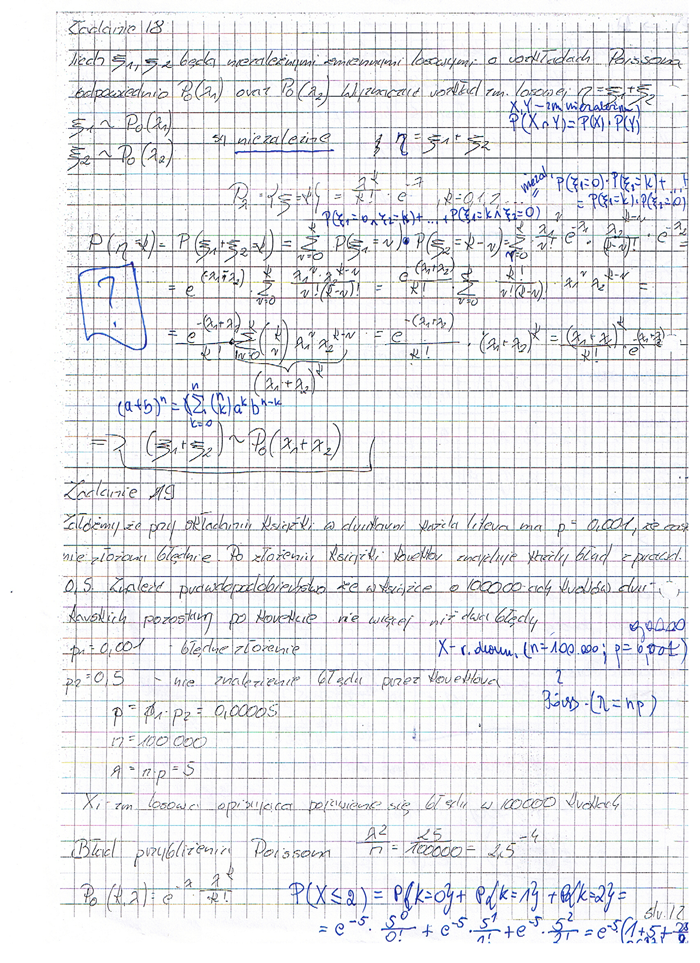 Zadanie 18
Niech ξ1, ξ2 będą niezależnymi zmiennymi losowymi o rozkładach Poissona
odpowiednio Po(λ1) oraz Po(λ2) Wyznaczyć rozkład zm. losowej η = ξ1 + ξ2
X, Y - zm niezależne
P(X ∩ Y) = P(X) · P(Y)
ξ1 ~ Po(λ1)
ξ2 ~ Po(λ2)
są niezależne
η = ξ1 + ξ2
Pλ = {ξ = k} = λ^k/k! · e^-λ, k = 0, 1, 2, ...
P(ξ1=0 ∧ ξ2=k) + ... + P(ξ1=k ∧ ξ2=0)
niezal. P(ξ1=0) · P(ξ2=k) + ... +
P(ξ1=k) · P(ξ2=0)
P(η=k) = P(ξ1+ξ2=k) = Σ_{v=0}^{k} P(ξ1=v) · P(ξ2=k-v) = Σ_{v=0}^{k} λ1^v/v! e^-λ1 · λ2^{k-v}/(k-v)! · e^-λ2 =
?
= e^(-λ1-λ2) · Σ_{v=0}^{k} λ1^v · λ2^{k-v}/v!(k-v)! = e^-(λ1+λ2)/k! · Σ_{v=0}^{k} k!/v!(k-v)! · λ1^v λ2^{k-v} =
= e^-(λ1+λ2)/k! · Σ_{v=0}^{k} (k v) λ1^v λ2^{k-v} = e^-(λ1+λ2)/k! · (λ1+λ2)^k = (λ1+λ2)^k/k! e^-(λ1+λ2)
(λ1+λ2)^k
(a+b)^n = Σ_{k=0}^{n} (n k) a^k b^{n-k}
=> (ξ1+ξ2) ~ Po(λ1+λ2)
Zadanie 19
Załóżmy że przy składaniu książki w drukarni każda litera ma p = 0,001, że
nie złożona błędnie. Po złożeniu książki korektor znajduje każdy błąd z prawd.
0,5. Znaleźć prawdopodobieństwo że w książce o 100000-ach znaków
pozostaną po korekcie nie więcej niż dwa błędy
p1 = 0,001 błędne złożenie
X - r. dwum. (n = 100.000; p = 0,001)
p2 = 0,5 - nie znalezienie błędu przez korektora
(λ = np)
p = p1 · p2 = 0,00005
n = 100 000
λ = n · p = 5
Xi - zm losowa opisująca pojawienie się błędu w 100000
Błąd przybliżenia Poissona λ²/n = 25/100000 = 2,5^-4
Po(k, λ) = e^-λ · λ^k/k!
P(X ≤ 2) = P{k=0} + P{k=1} + P{k=2} =
str. 12
= e^-5 · 5^0/0! + e^-5 · 5^1/1! + e^-5 · 5^2/2! = e^-5 (1+5+